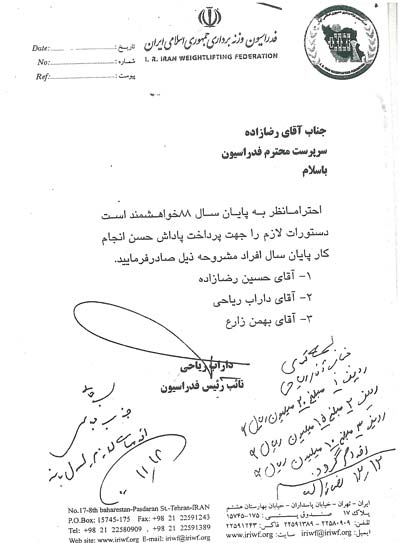 فدراسیون وزنه برداری جمهوری اسلامی ایران
I. R. IRAN WEIGHTLIFTING FEDERATION
Date: تاریخ :
No: شماره :
Ref: پیوست :
جناب آقای رضازاده
سرپرست محترم فدراسیون
باسلام
احترامانظر به پایان سال ۸۸خواهشمند است
دستورات لازم را جهت پرداخت پاداش حسن انجام
کار پایان سال افراد مشروحه ذیل صادرفرمایید.
۱- آقای حسین رضازاده
۲- آقای داراب ریاحی
۳- آقای بهمن زارع
داراب ریاحی
نائب رئیس فدراسیون
جناب آقای ریاحی
ردیف ۱ مبلغ ۲۰ میلیون ریال
ردیف ۲ مبلغ ۱۵ میلیون ریال
ردیف ۳ مبلغ ۱۰ میلیون ریال
اقدام گردد
۱۲/۱۳
No.17-8th baharestan-Pasdaran St.-Tehran-IRAN
P.O.Box: 15745-175 Fax: +98 21 22591243
Tel: +98 21 22580909 , +98 21 22591389
Web site: www.iriwf.org E-mail: iriwf@iriwf.org
ایران - تهران - خیابان پاسداران - خیابان بهارستان هشتم
پلاک ۱۷ صندوق پستی : ۱۷۵-۱۵۷۴۵
تلفن : ۲۲۵۸۰۹۰۹ - ۲۲۵۹۱۳۸۹ فاکس: ۲۲۵۹۱۲۴۳
ایمیل: iriwf@iriwf.org سایت: www.iriwf.org